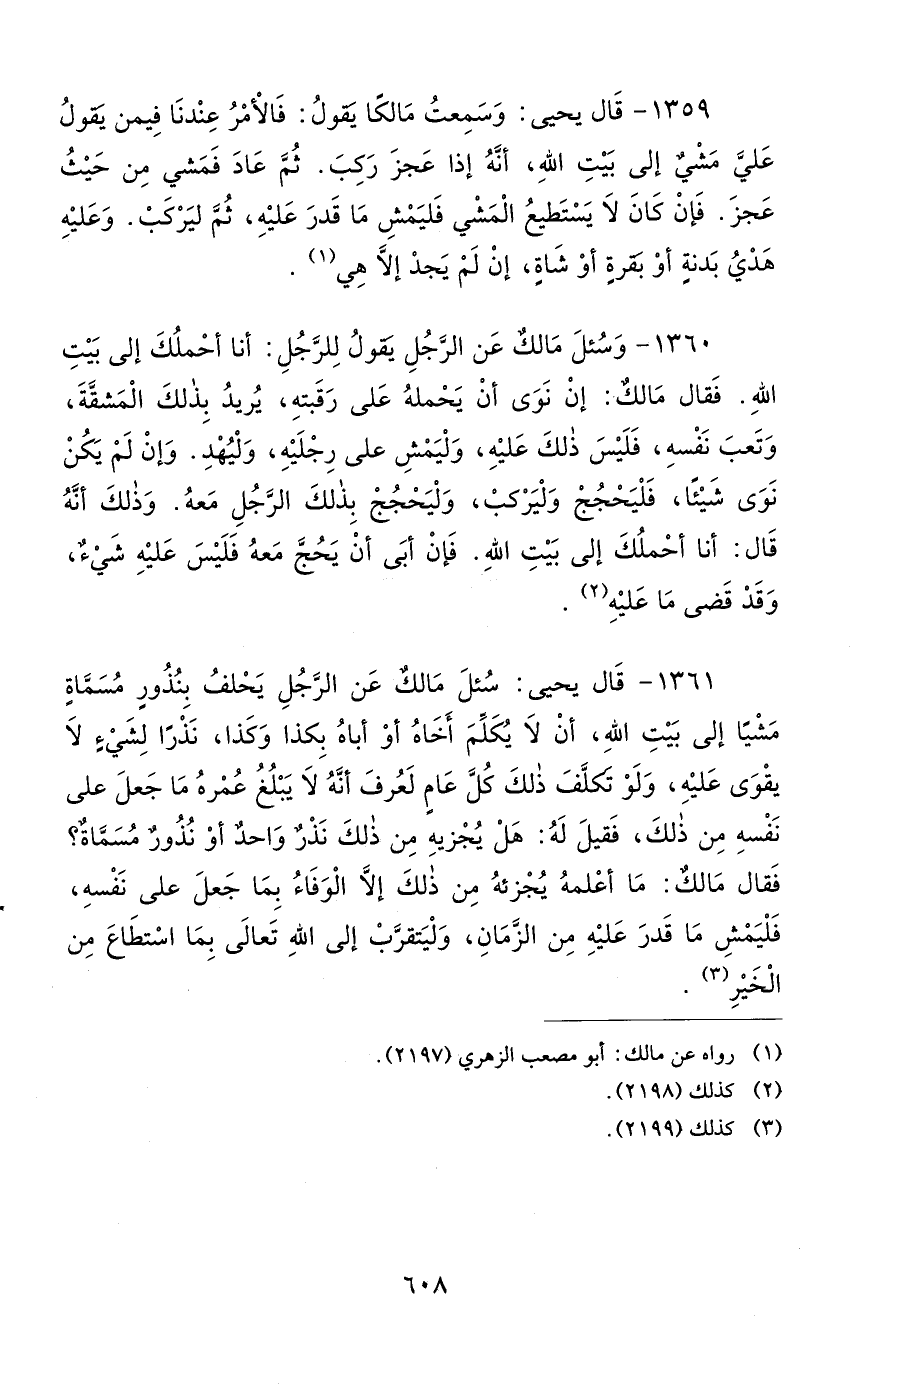 ١٣٥٩- قَال يحيى: وَسَمِعتُ مَالكًا يَقولُ: فَالْأمْرُ عِنْدنَا فِيمن يَقولُ
عَليَّ مَشْيٌ إلى بَيْتِ اللهِ، أنَّهُ إذا عَجزَ رَكِبَ. ثُمَّ عَادَ فَمَشي مِن حَيْثُ
عَجزَ. فَإنْ كَانَ لاَ يَسْتَطيعُ الْمَشْي فَليَمْشِ مَا قَدرَ عَليْهِ، ثُمَّ ليَرْكَبْ. وَعَليْهِ
هَدْيُ بَدنةٍ أوْ بَقرةٍ أوْ شَاةٍ، إنْ لَمْ يَجدْ إلاَّ هِي(١).
١٣٦٠- وَسُئلَ مَالكٌ عَن الرَّجُلِ يَقولُ لِلرَّجُلِ: أنا أحْملُكَ إلى بَيْتِ
اللهِ. فَقال مَالكٌ: إنْ نَوَى أنْ يَحْملهُ عَلى رَقَبتهِ، يُريدُ بِذٰلكَ الْمَشقَّةَ،
وَتَعبَ نَفْسهِ، فَلَيْسَ ذٰلكَ عَليْهِ، وَلْيَمْشِ على رِجْلَيْهِ، وَلْيُهْدِ. وَإنْ لَمْ يَكُنْ
نَوَى شَيْئًا، فَلْيَحْجُجْ وَلْيَرْكبْ، وَلْيَحْجُجْ بِذٰلكَ الرَّجُلِ مَعهُ. وَذٰلكَ أنَّهُ
قَال: أنا أحْملُكَ إلى بَيْتِ اللهِ. فَإنْ أبَى أنْ يَحُجَّ مَعهُ فَلَيْسَ عَليْهِ شَيْءٌ،
وَقَدْ قَضى مَا عَليْهِ(٢).
١٣٦١- قَال يحيى: سُئلَ مَالكٌ عَن الرَّجُلِ يَحْلفُ بِنُذُورٍ مُسَمَّاةٍ
مَشْيًا إلى بَيْتِ اللهِ، أنْ لاَ يُكَلِّمَ أَخَاهُ أوْ أباهُ بِكذا وَكَذا، نَذْرًا لِشَيْءٍ لاَ
يقْوَى عَليْهِ، وَلَوْ تَكلَّفَ ذٰلكَ كُلَّ عَامٍ لَعُرفَ أنَّهُ لاَ يَبْلُغُ عُمْرهُ مَا جَعلَ على
نَفْسهِ مِن ذٰلكَ، فَقيلَ لَهُ: هَلْ يُجْزيهِ مِن ذٰلكَ نَذْرٌ وَاحدٌ أوْ نُذُورٌ مُسَمَّاةٌ؟
فَقال مَالكٌ: مَا أعْلمهُ يُجْزئهُ مِن ذٰلكَ إلاَّ الْوَفَاءُ بِمَا جَعلَ على نَفْسهِ،
فَلْيَمْشِ مَا قَدرَ عَليْهِ مِن الزَّمَانِ، وَلْيَتقرَّبْ إلى اللهِ تَعالَى بِمَا اسْتطَاعَ مِن
الْخَيْرِ(٣).
(١) رواه عن مالك: أبو مصعب الزهري (٢١٩٧).
(٢) كذلك (٢١٩٨).
(٣) كذلك (٢١٩٩).
٦٠٨